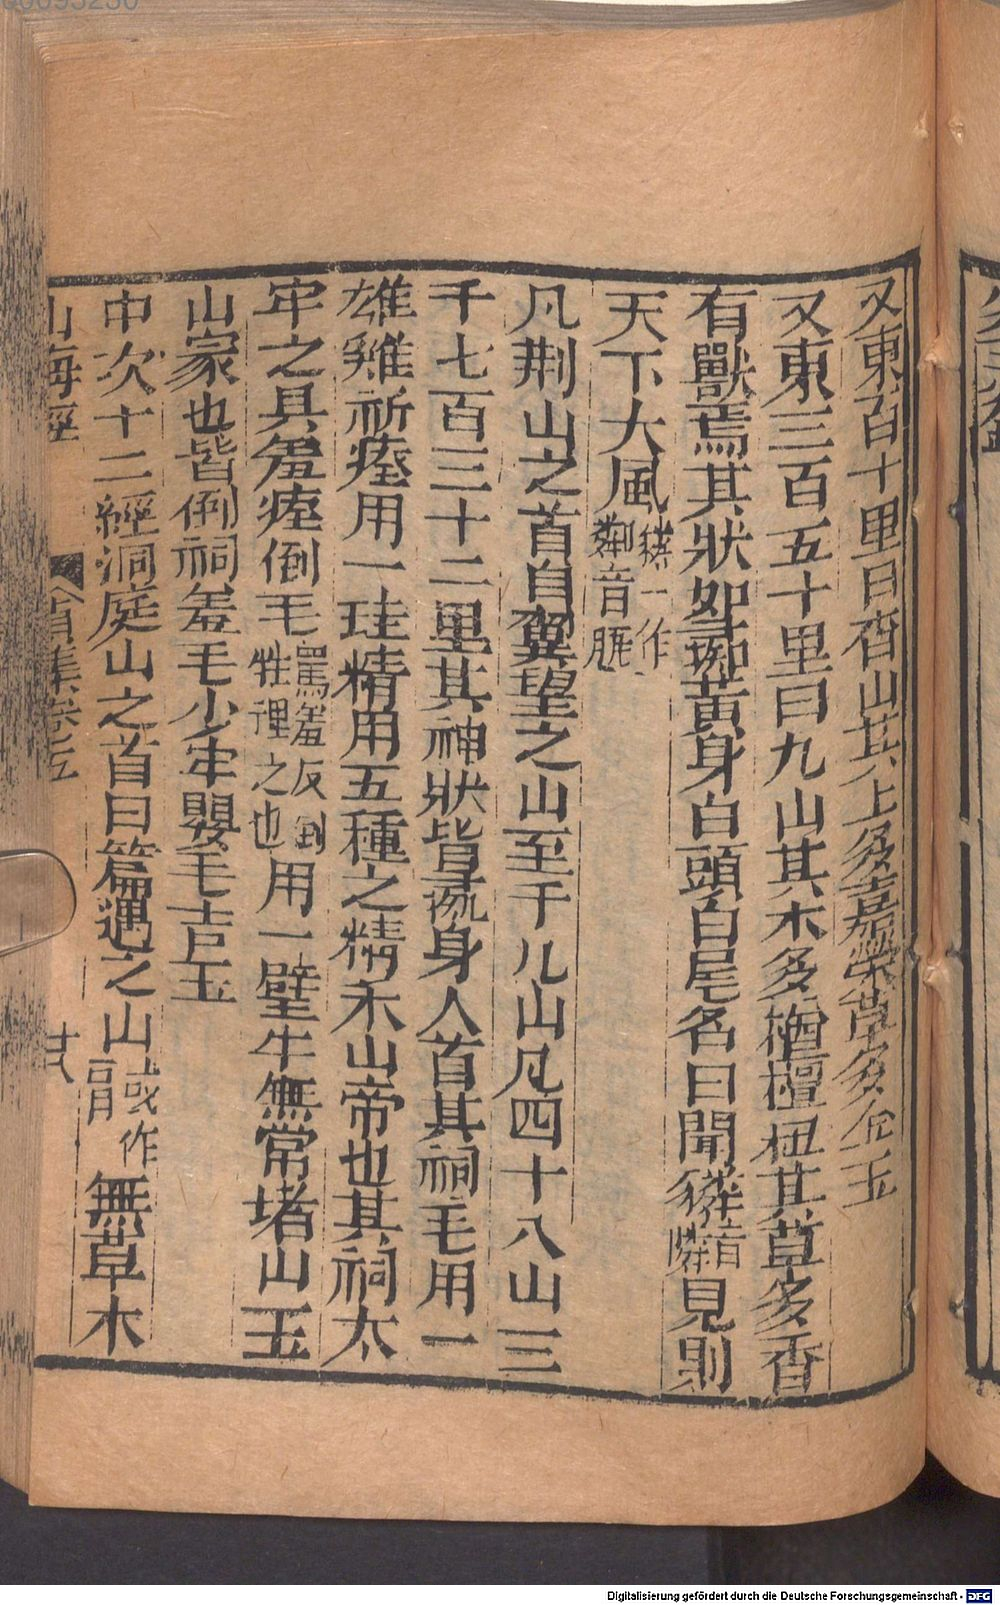 又東百十里曰杳山其上多嘉榮草多金玉
又東三百五十里曰九山其木多楢檀杻其草多香
有獸焉其狀如彘黃身白頭白尾名曰聞獜音鄰見則
天下大風獜一作𤡔音甀
凡荆山之首自翼望之山至千几山凡四十八山三
千七百三十二里其神狀皆彘身人首其祠毛用一
雄雞祈瘞用一珪精用五種之精禾山帝也其祠太
牢之具羞瘞倒毛罵羞反到牲理之也用一壁牛無常堵山玉
山冢也皆倒祠羞毛少牢嬰毛吉玉
中次十二經洞庭山之首曰篇遇之山或作肓無草木
山海經 卷五 廿八
00093230
Digitalisierung gefördert durch die Deutsche Forschungsgemeinschaft - DFG